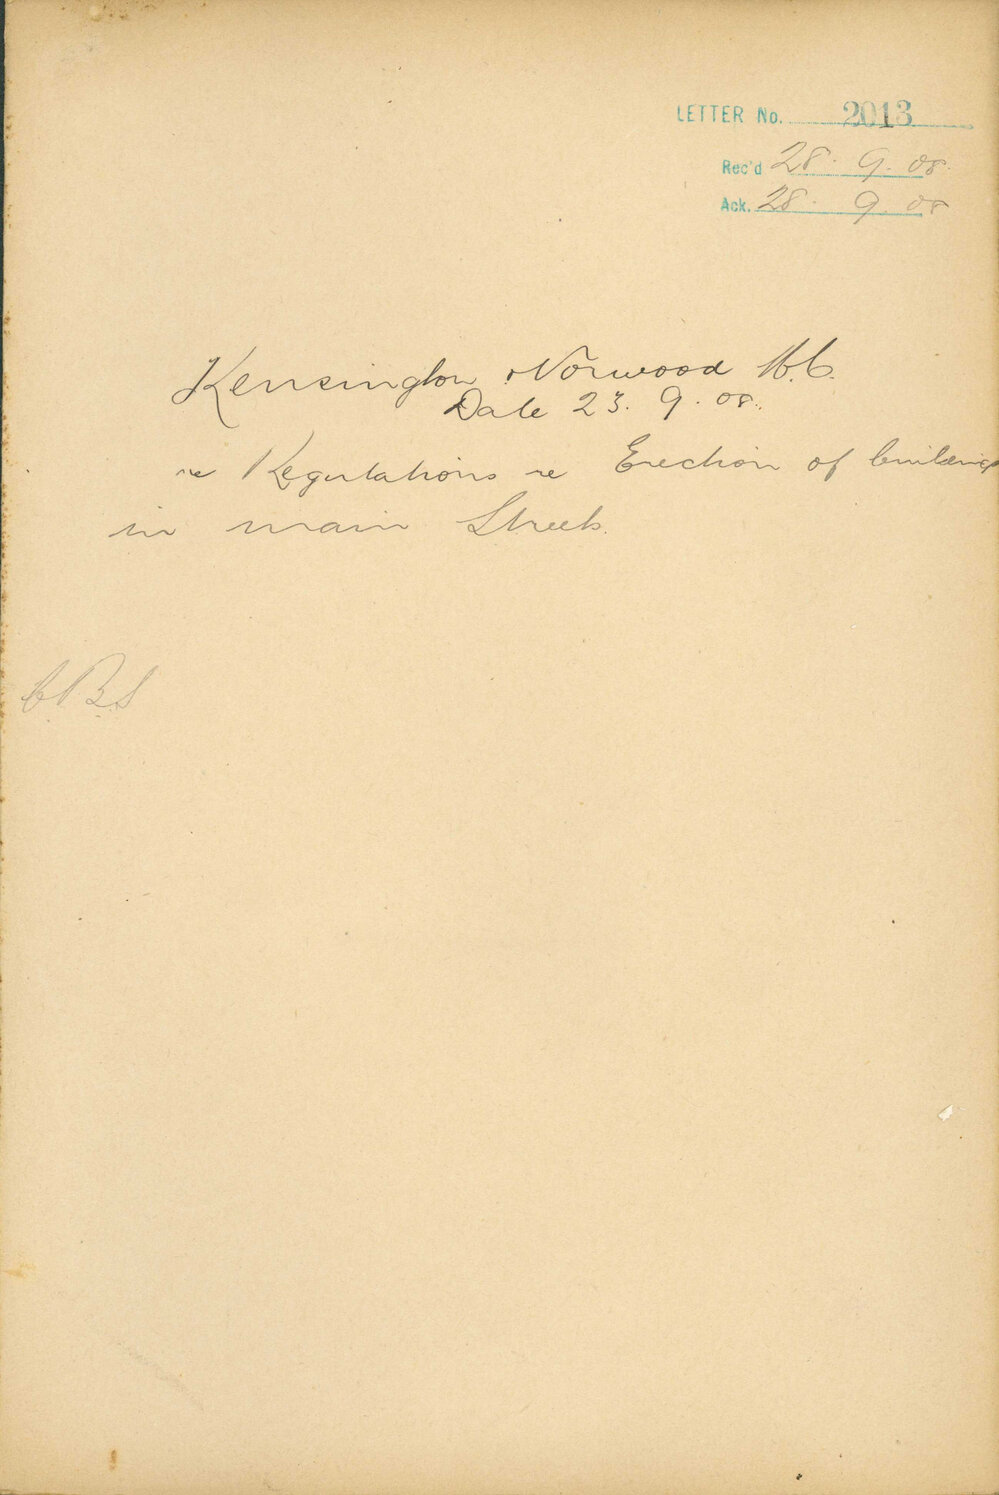 LETTER No. 2013
Rec'd 28. 9. 08.
Ack. 28. 9. 08
Kensington & Norwood M.C.
Date 23. 9. 08.
re Regulations re Erection of buildings
in main Streets.
C.B.S